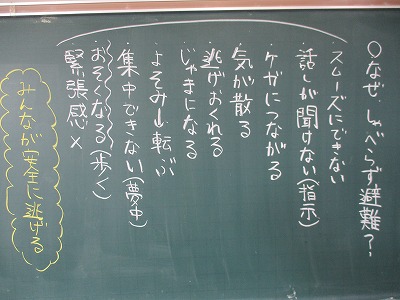 ○なぜ、しゃべらず避難？
・スムーズにできない
・話しが聞けない(指示)
・ケガにつながる
・気が散る
・逃げおくれる
・じゃまになる
・よそみ→転ぶ
・集中できない(夢中)
・おそくなる(歩く)
・緊張感×
みんなが安全に逃げる